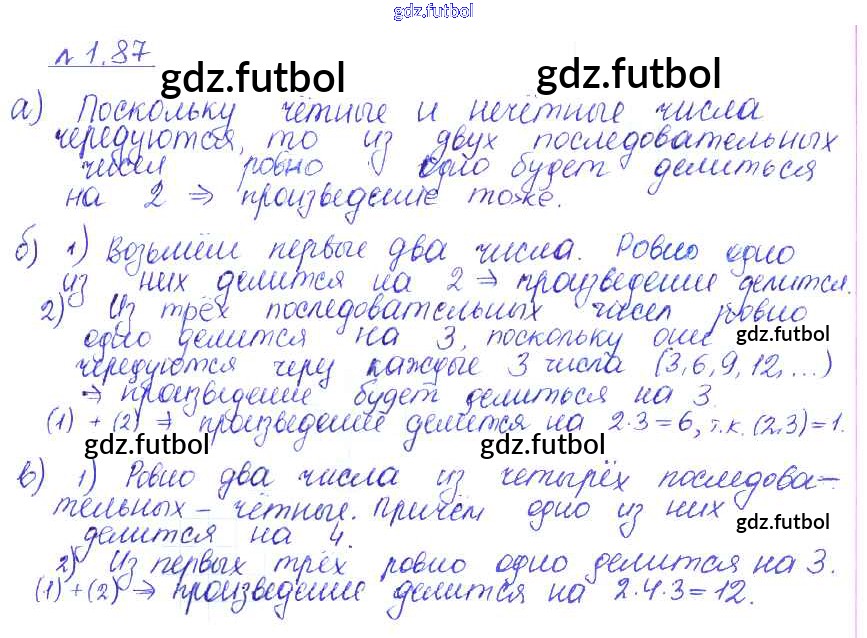 gdz.futbol
№ 1.87
gdz.futbol gdz.futbol
а) Поскольку чётные и нечётные числа
чередуются, то из двух последовательных
чисел ровно одно будет делиться
на 2 ⇒ произведение тоже.
б) 1) Возьмём первые два числа. Ровно одно
из них делится на 2 ⇒ произведение делится.
2) Из трёх последовательных чисел ровно
одно делится на 3, поскольку они
gdz.futbol
чередуются через каждые 3 числа (3,6,9,12,...)
⇒ произведение будет делиться на 3.
(1) + (2) ⇒ произведение делится на 2·3=6, т.к. (2,3)=1.
gdz.futbol gdz.futbol
в) 1) Ровно два числа из четырёх последова-
тельных – чётные. Причём одно из них
gdz.futbol
делится на 4.
2) Из первых трёх ровно одно делится на 3.
(1)+(2) ⇒ произведение делится на 2·4·3=12.